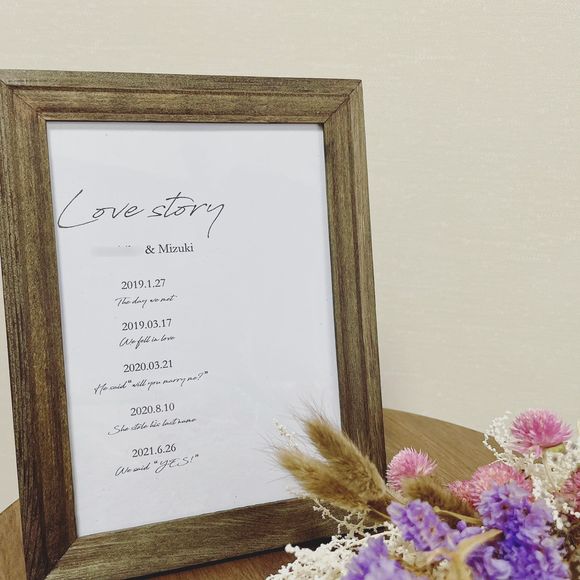 Love story
& Mizuki
2019.1.27
The day we met
2019.03.17
We fell in love
2020.03.21
He said "will you marry me?"
2020.8.10
She stole his last name
2021.6.26
We said "YES!"